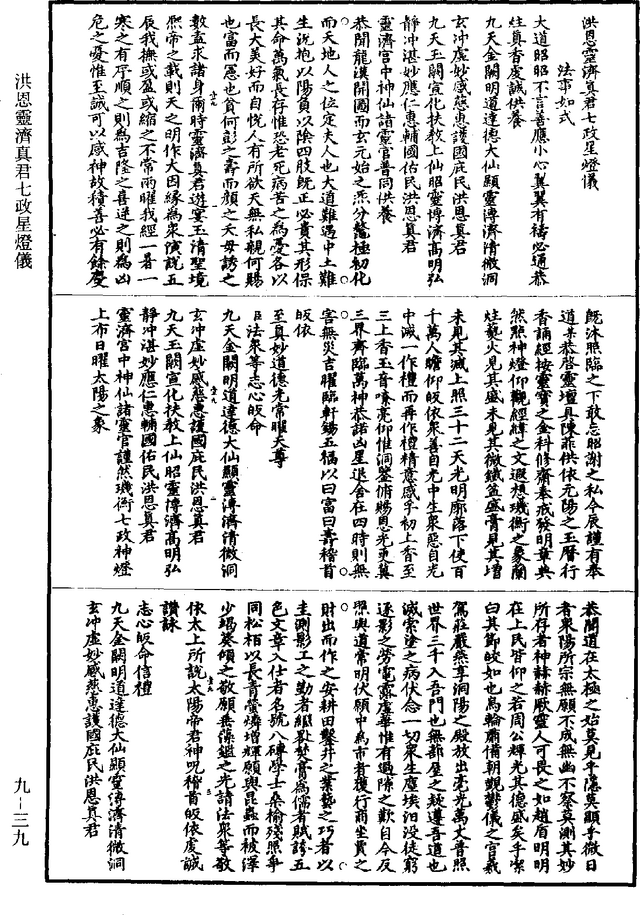 洪恩靈濟真君七政星燈儀
法事如式
大道昭昭不言善應小心翼翼有禱必通恭
炷真香虔誠供養
九天金闕明道達德大仙顯靈溥濟清微洞
玄沖虛妙感慈惠護國庇民洪恩真君
九天玉闕宣化扶教上仙昭靈博濟高明弘
靜沖湛妙應仁惠輔國佑民洪恩真君
靈濟宮中神仙諸靈官普同供養
恭聞龍漢開圖而玄元始之炁分鰲極初化
而天地人之位定夫人也大道難遇中土難
生況抱以陽負以陰四肢旣正必貴其形保
其命萬氣長存惟恐老死病苦之為憂各以
長大美好而自恱人有所欲天無私親何賜
也富而慝也貧何彭之壽而顏之夭毋誘之
數盍求諸身爾時靈濟真君遊宴玉清聖境
熈帝之載則天之明作大因緣為衆演說五
辰我撫或盈或縮之不常雨曜我經一暑一
寒之有序順之則為吉隆之喜逆之則為凶
危之憂惟至誠可以感神故積善必有餘慶
旣沐照臨之下敢忘昭謝之私今辰謹有奉
道某恭啓靈壇具陳菲供依元陽之玉曆行
香誦經按靈寶之金科修齋奉戒發明章典
然點神燈仰觀經緯之文遐想璣衡之象蘭
炷藝火見其盛未見其微銀盆盛膏見其增
未見其減上照三十二天光明廓落下使百
千萬人瞻仰皈依衆善自光中生衆惡自光
中滅一作禮而再作禮精意感孚初上香至
三上香玉音嘹亮仰惟洞鑒俯賜恩光更冀
三界齊臨萬神恭諾凶星退舍在四時則無
害無災吉曜臨軒錫五福以曰富曰壽稽首
皈依
至真妙道德光常曜天尊
臣法衆等志心皈命
九天金闕明道達德大仙顯靈溥濟清微洞
玄沖虛妙感慈惠護國庇民洪恩真君
九天玉闕宣化扶教上仙昭靈博濟高明弘
靜沖湛妙應仁惠輔國佑民洪恩真君
靈濟宮中神仙諸靈官謹然璣衡七政神燈
上布日曜太陽之象
恭聞道在太極之始莫見乎隱莫顯乎微日
者衆陽所宗無願不成無幽不察莫測其妙
所存者神赫赫厥靈人可畏之如趙盾明明
在上民皆仰之若周公輝光其德盛矣乎潔
白其節皎如也馬輪肅備朝覲鬱儀之宮羲
駕莊嚴燕享洞陽之殿放出毫光萬丈普照
世界三千入吾門也無蔀屋之疑遵吾道也
滅索塗之病伏念一切衆生塵埃汨没徒窮
逐影之勞電露虛華惟有過隙之歎自今反
照與道常明伏願中為市者獲行商坐賈之
財出而作之安耕田鑿井之業藝之巧者以
圭測影工之勤者繼晷焚膏為儒者賦誇五
色文章入仕者名號八磚學士桑榆殘照爭
同松栢以長青螢爝增輝願與昆蟲而被澤
少竭葵傾之敬願垂藻鑑之光請法衆等敬
依太上所說太陽帝君神呪稽首皈依虔誠
讚詠
志心皈命信禮
九天金闕明道達德大仙顯靈溥濟清微洞
玄沖虛妙感慈惠護國庇民洪恩真君
洪恩靈濟真君七政星燈儀
九-三九